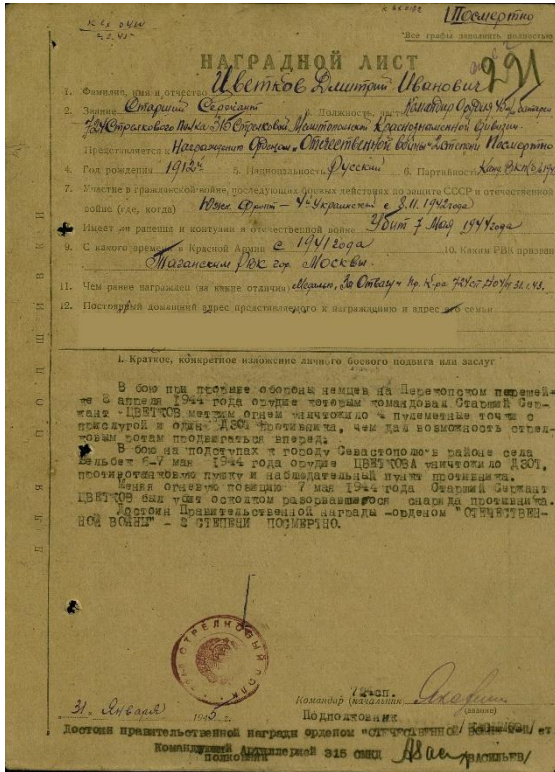 Посмертно
Все графы заполнять полностью
НАГРАДНОЙ ЛИСТ
291
1. Фамилия, имя и отчество Цветков Дмитрий Иванович
2. Звание Старший Сержант 3. Должность, часть Командир Орудия 45мм батареи
724 Стрелкового Полка 315 Стрелковой Мелитопольской Краснознаменной Дивизии
Представляется к Награждению Орденом "Отечественной войны" 2 степени Посмертно
4. Год рождения 1912г. 5. Национальность Русский 6. Партийность Канд. ВКП(б)
7. Участие в гражданской войне, последующих боевых действиях по защите СССР и отечественной
войне (где, когда) Южн. Фронт – 4й Украинский с 8.11.1942 года
8. Имеет ли ранения и контузии в отечественной войне Убит 7 Мая 1944 года
9. С какого времени в Красной Армии с 1941 года 10. Каким РВК призван
Таганским РВК гор. Москвы
11. Чем ранее награжден (за какие отличия) Медалью "За Отвагу" Пр. К-ра 724 сп
12. Постоянный домашний адрес представляемого к награждению и адрес его семьи
ДЛЯ ПОДШИВКИ
I. Краткое, конкретное изложение личного боевого подвига или заслуг
В бою при прорыве обороны немцев на Перекопском перешей-
ке 8 апреля 1944 года орудие которым командовал Старший Сер-
жант -ЦВЕТКОВ метким огнем уничтожило 4 пулеметные точки с
прислугой и один ДЗОТ противника, чем дал возможность стрел-
ковым ротам продвигаться вперед.
В бою на подступах к городу Севастополю в районе села
Бельбек 6-7 мая 1944 года орудие ЦВЕТКОВА уничтожило ДЗОТ,
противотанковую пушку и наблюдательный пункт противника.
Меняя огневую позицию 7 мая 1944 года Старший Сержант
ЦВЕТКОВ был убит осколком разорвавшегося снаряда противника.
Достоин Правительственной награды -орденом "ОТЕЧЕСТВЕН-
НОЙ ВОЙНЫ" - 2 СТЕПЕНИ ПОСМЕРТНО.
СТРЕЛКОВЫЙ ПОЛК
724 сп.
Командир (начальник
(звание)
31. Января 1945 г.
Подполковник
Достоин правительственной награды орденом "ОТЕЧЕСТВЕННОЙ ВОЙНЫ
Командующий Артиллерией 315 СМКД
полковник /ВАСИЛЬЕВ/